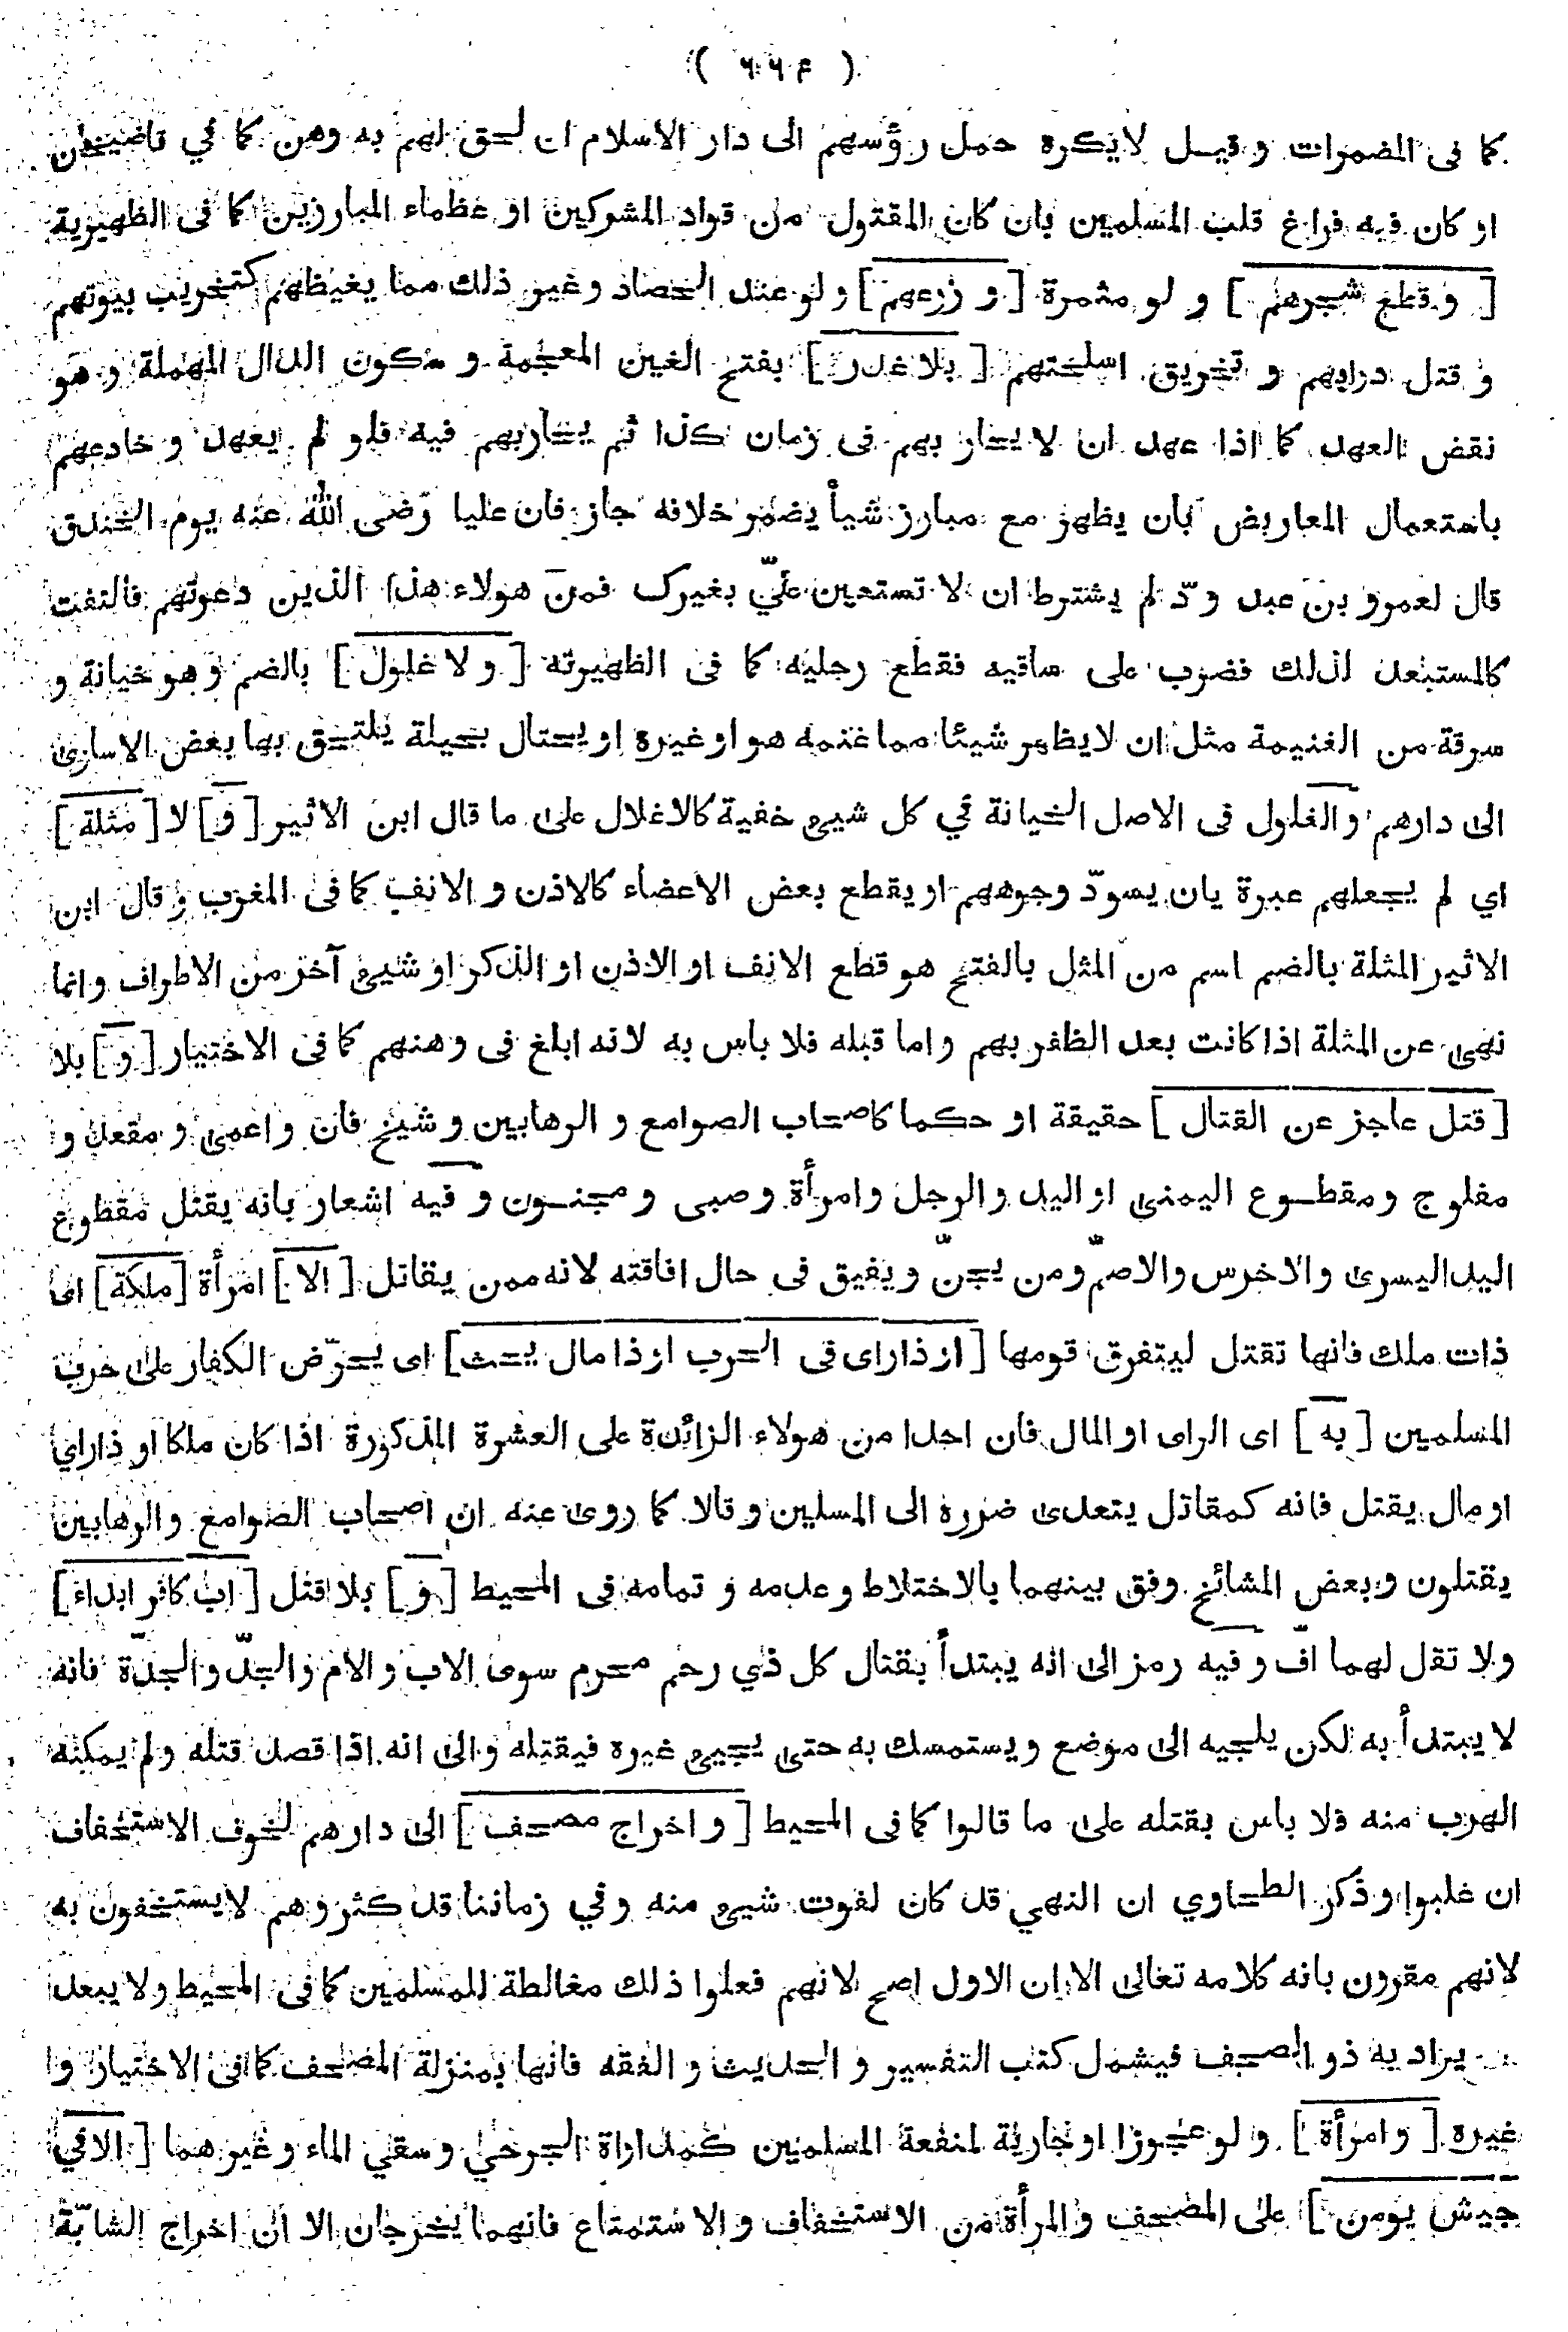 ( ٦٦٤ )
كما فى المضمرات و قيل لايكره حمل رؤسهم الى دار الاسلام ان لحق لهم به وهن كما في قاضيخان
او كان فيه فراغ قلب المسلمين بان كان المقتول من قواد المشركين او عظماء المبارزين كما فى الظهيرية
[ و قطع شجرهم ] و لو مثمرة [ و زرعهم ] و لو عند الحصاد وغير ذلك مما يغيظهم كتخريب بيوتهم
و قتل درابهم و تحريق اسلحتهم [ بلا غدر ] بفتح الغين المعجمة و سكون الدال المهملة و هو
نقض العهد كما اذا عهد ان لا يحار بهم فى زمان كذا ثم يحاربهم فيه فلو لم يعهد و خادعهم
باستعمال المعاريض بان يظهر مع مبارز شيأ يضمر خلافه جاز فان عليا رضى الله عنه يوم الخندق
قال لعمرو بن عبد ودّ لم يشترط ان لا تستعين عليّ بغيرك فمن هولاء هذا الذين دعوتهم فالتفت
كالمستبعد لذلك فضرب على ساقيه فقطع رجليه كما فى الظهيرته [ و لا غلول ] بالضم و هو خيانة و
سرقة من الغنيمة مثل ان لايظهر شيئا مما غنمه هو او غيره او يحتال بحيلة يلتحق بها بعض الاسارى
الى دارهم والغلول فى الاصل الخيانة في كل شيئ خفية كالاغلال على ما قال ابن الاثير [ و ] لا [ مثلة ]
اي لم يجعلهم عبرة يان يسودّ وجوههم او يقطع بعض الاعضاء كالاذن و الانف كما فى المغرب و قال ابن
الاثير المثلة بالضم اسم من المثل بالفتح هو قطع الانف او الاذن او الذكر او شيئ آخر من الاطراف وانما
نهى عن المثلة اذا كانت بعد الظفر بهم واما قبله فلا باس به لانه ابلغ فى وهنهم كما فى الاختيار [ و ] بلا
[ قتل عاجز عن القتال ] حقيقة او حكما كاصحاب الصوامع و الرهابين و شيخ فان و اعمى و مقعد و
مفلوج و مقطوع اليمنى او اليد والرجل وامرأة وصبى و مجنون و فيه اشعار بانه يقتل مقطوع
اليد اليسرى والاخرس والاصمّ ومن يجنّ ويفيق فى حال افاقته لانه ممن يقاتل [ الا ] امرأة [ ملكة ] اى
ذات ملك فانها تقتل ليتفرق قومها [ او ذاراى فى الحرب او ذا مال يحث ] اى يحرّض الكفار على حرب
المسلمين [ به ] اى الراى او المال فان احدا من هولاء الزائدة على العشرة المذكورة اذا كان ملكا او ذاراي
او مال يقتل فانه كمقاتل يتعدى ضرره الى المسلين و قالا كما روى عنه ان اصحاب الصوامع والرهابين
يقتلون و بعض المشائخ وفق بينهما بالاختلاط و عدمه و تمامه فى المحيط [ و ] بلا قتل [ اب كافر ابتداء ]
ولا تقل لهما افّ و فيه رمز الى انه يبتدأ بقتال كل ذي رحم محرم سوى الاب و الام والجدّ والجدّة فانه
لا يبتدأ به لكن يلجيه الى موضع ويستمسك به حتى يجيئ غيره فيقتله والى انه اذا قصد قتله ولم يمكنه
الهرب منه فلا باس بقتله على ما قالوا كما فى المحيط [ و اخراج مصحف ] الى دارهم لخوف الاستخفاف
ان غلبوا و ذكر الطحاوي ان النهي قد كان لفوت شيئ منه وفي زماننا قد كثر وهم لايستخفون به
لانهم مقرون بانه كلامه تعالى الا ان الاول اصح لانهم فعلوا ذلك مغالطة للمسلمين كما فى المحيط ولا يبعد
يراد به ذو المصحف فيشمل كتب التفسير و الحديث و الفقه فانها بمنزلة المصحف كما فى الاختيار و
غيره [ و امرأة ] و لو عجوزا او جارية لمنفعة المسلمين كمداراة الجرحى وسقي الماء وغيرهما [ الا في
جيش يومن ] على المصحف والمرأة من الاستخفاف والاستمتاع فانهما يخرجان الا ان اخراج الشابّة